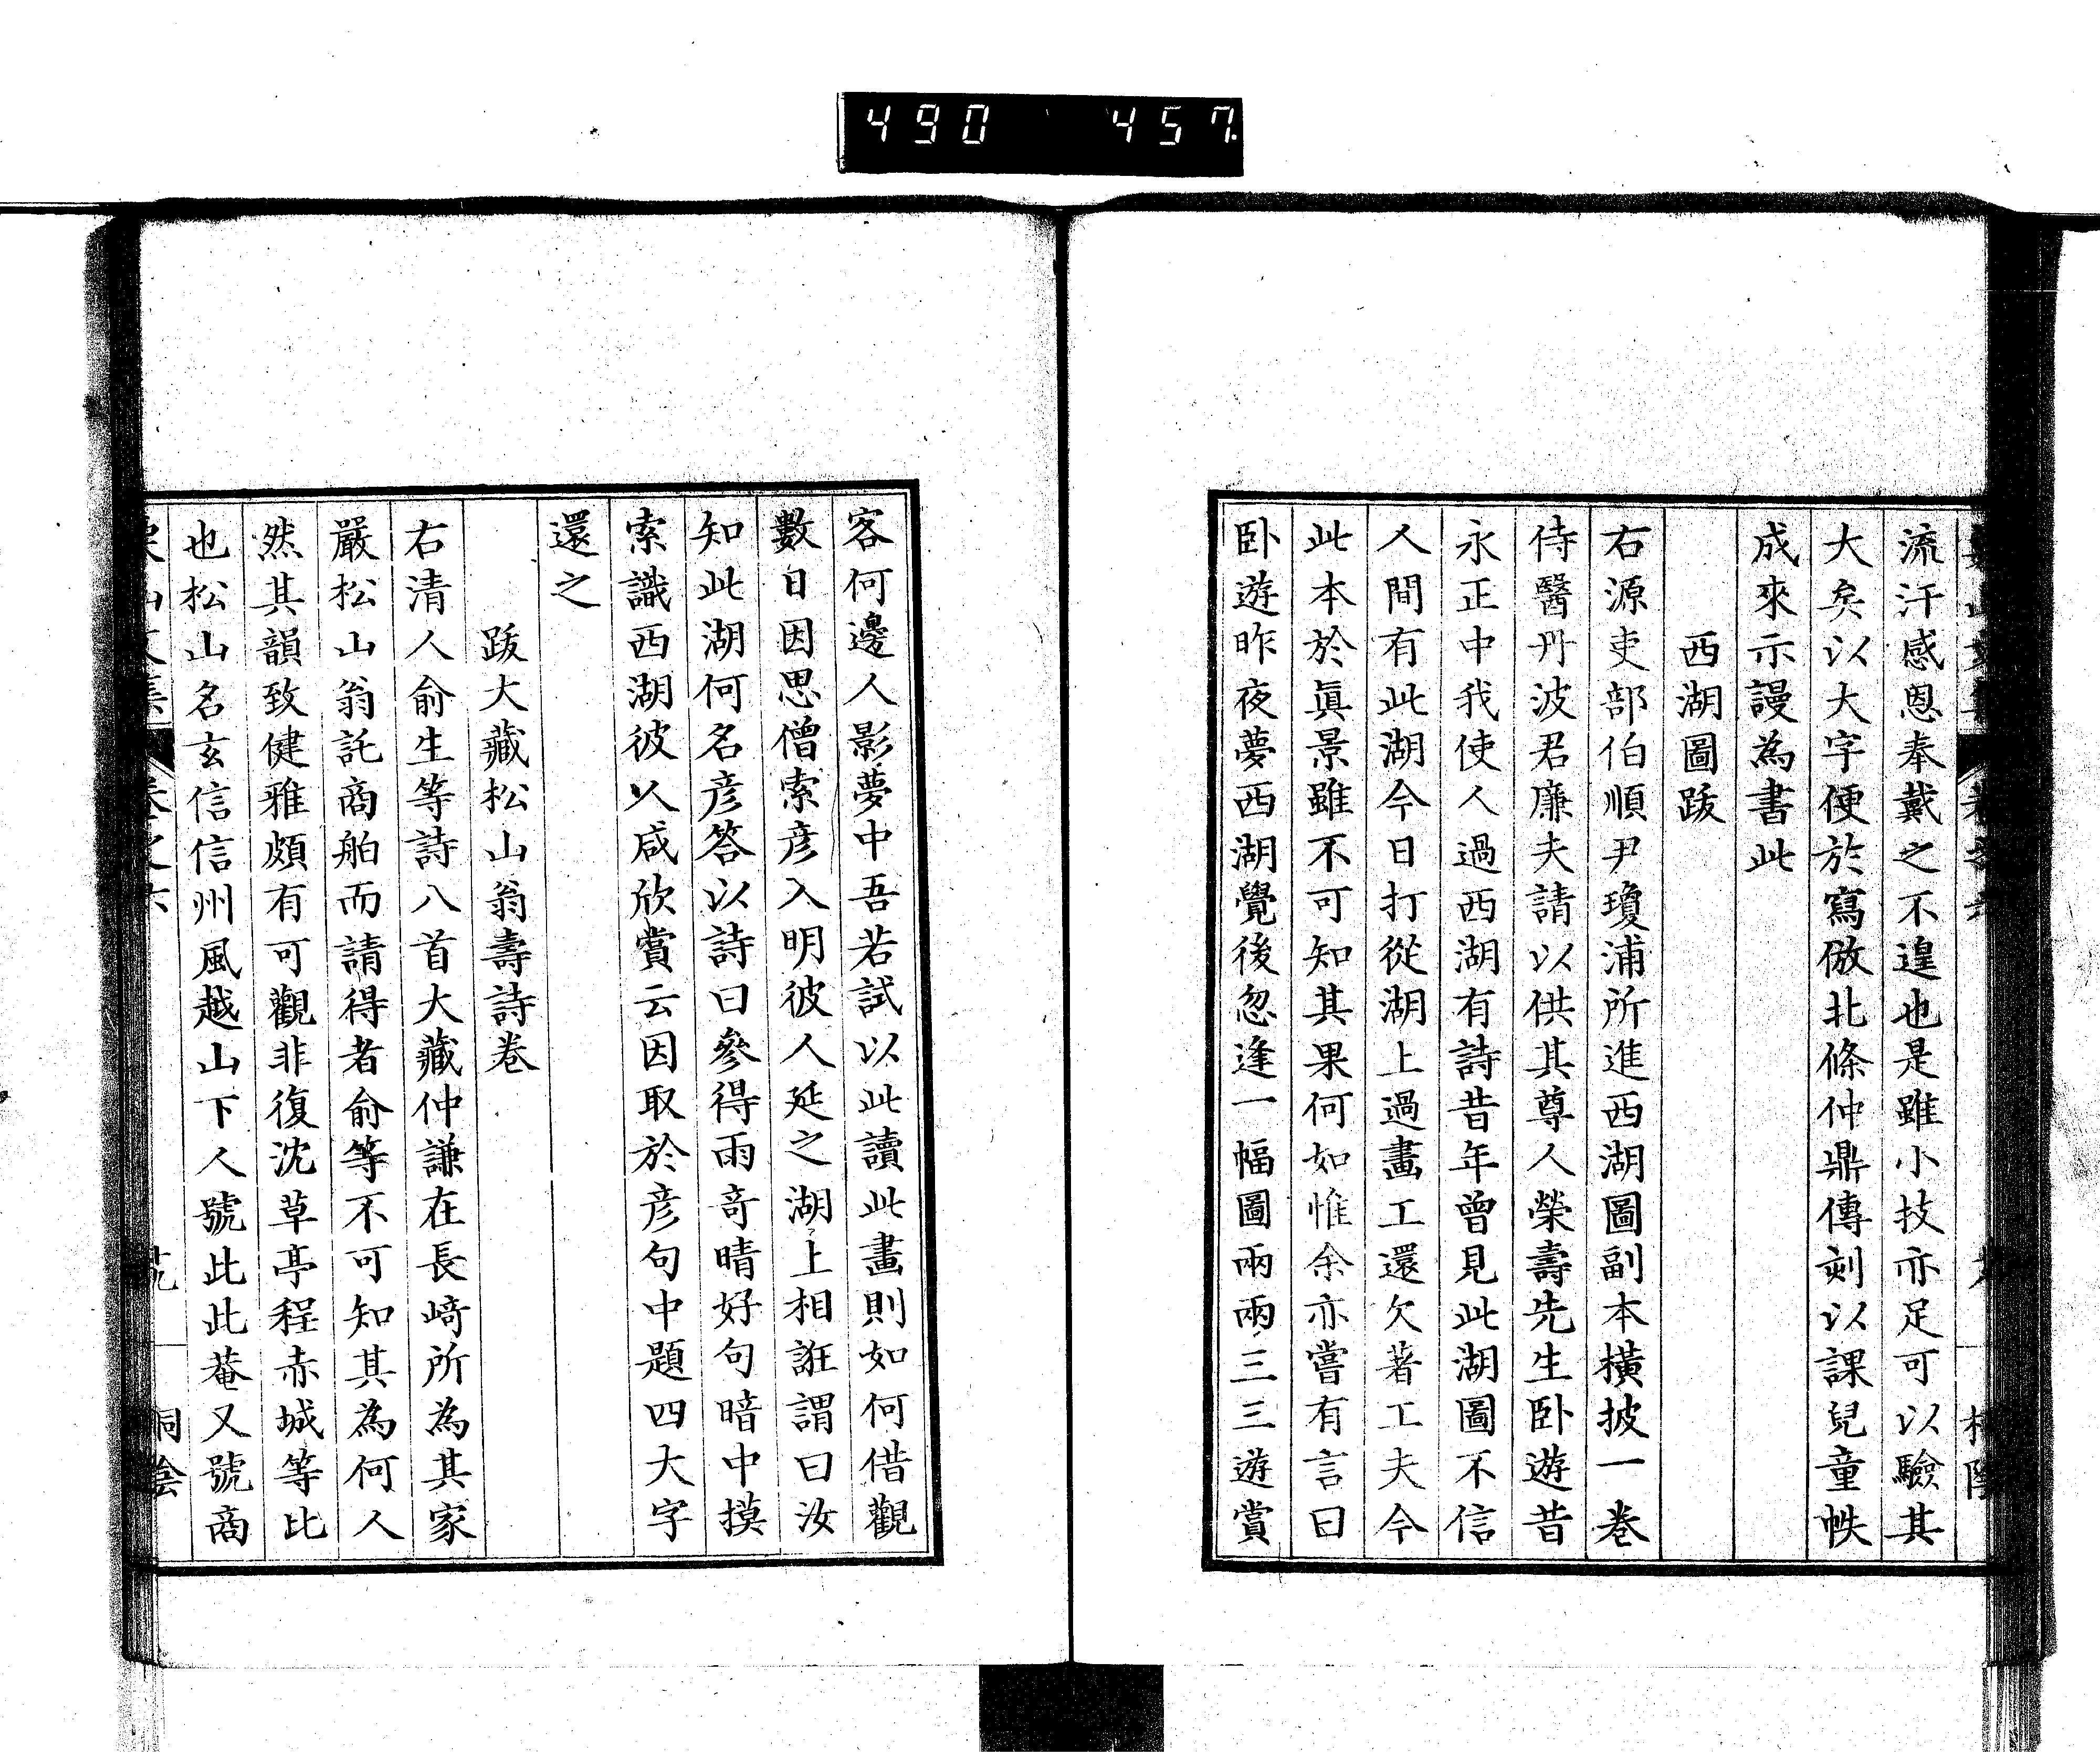 490 457
流汗感恩奉戴之不遑也是雖小技亦足可以驗其
大矣以大字便於寫倣北條仲鼎傳刻以課兒童帙
成來示謾為書此
西湖圖跋
右源吏部伯順尹瓊浦所進西湖圖副本橫披一巻
侍醫丹波君廉夫請以供其尊人榮壽先生卧遊昔
永正中我使人過西湖有詩昔年曾見此湖圖不信
人間有此湖今日打從湖上過畫工還欠著工夫今
此本於眞景雖不可知其果何如惟余亦嘗有言曰
卧遊昨夜夢西湖覺後忽逢一幅圖兩兩三三遊賞
客何邊人影夢中吾若試以此讀此畫則如何借觀
數日因思僧索彦入明彼人延之湖上相誑謂曰汝
知此湖何名彦答以詩曰參得雨奇晴好句暗中摸
索識西湖彼人咸欣賞云因取於彦句中題四大字
還之
跋大藏松山翁壽詩巻
右清人俞生等詩八首大藏仲謙在長﨑所為其家
嚴松山翁託商舶而請得者俞等不可知其為何人
然其韻致健雅頗有可觀非復沈草亭程赤城等比
也松山名玄信信州風越山下人號此此菴又號商
山文集 卷之六 桐陰